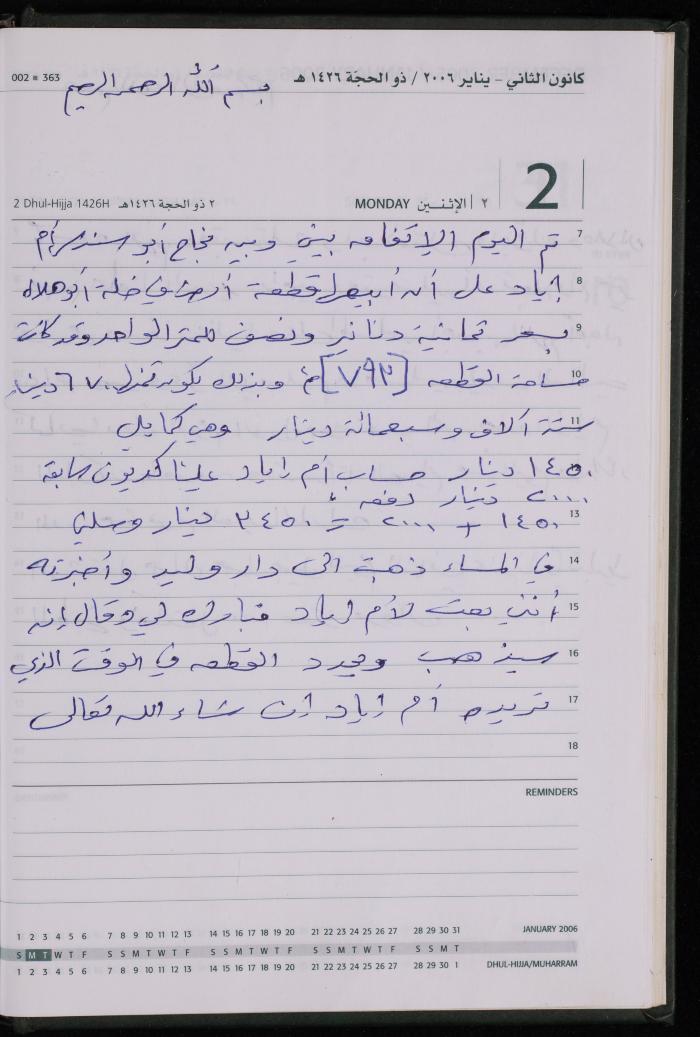 002 ■ 363
بسم الله الرحمن الرحيم
كانون الثاني - يناير ٢٠٠٦ / ذو الحجة ١٤٢٦ هـ
2
2 Dhul-Hijja 1426H ٢ ذو الحجة ١٤٢٦هـ MONDAY الإثنين ٢
7 تم اليوم الإتفاق بيني وبين نجاح أبو سندس أم
8 إياد على أن أبيعها قطعة أرض في خلة أبو هلال
9 بسعر ثمانية دنانير ونصف للمتر الواحد وقد كانت
10 مساحة القطعه [٧٩٢] م٢ وبذلك يكون ثمنها ٦٧٠٠ دينار
11 ستة آلاف وسبعمائة دينار وهي كما يلي
١٤٥٠ دينار حساب أم إياد علينا كديون سابقة
٢٠٠٠ دينار دفعه
13 ١٤٥٠ + ٢٠٠٠ = ٣٤٥٠ دينار
14 في المساء ذهبت الى دار وليد وأخبرته
15 أنني بعت لأم إياد فبارك لي وقال إنه
16 سيذهب ويحدد القطعه في الوقت الذي
17 تريده أم إياد إن شاء الله تعالى
18
REMINDERS
1 2 3 4 5 6 7 8 9 10 11 12 13 14 15 16 17 18 19 20 21 22 23 24 25 26 27 28 29 30 31 JANUARY 2006
S M T W T F S S M T W T F S S M T W T F S S M T W T F S S M T
1 2 3 4 5 6 7 8 9 10 11 12 13 14 15 16 17 18 19 20 21 22 23 24 25 26 27 28 29 30 1 DHUL-HIJJA/MUHARRAM